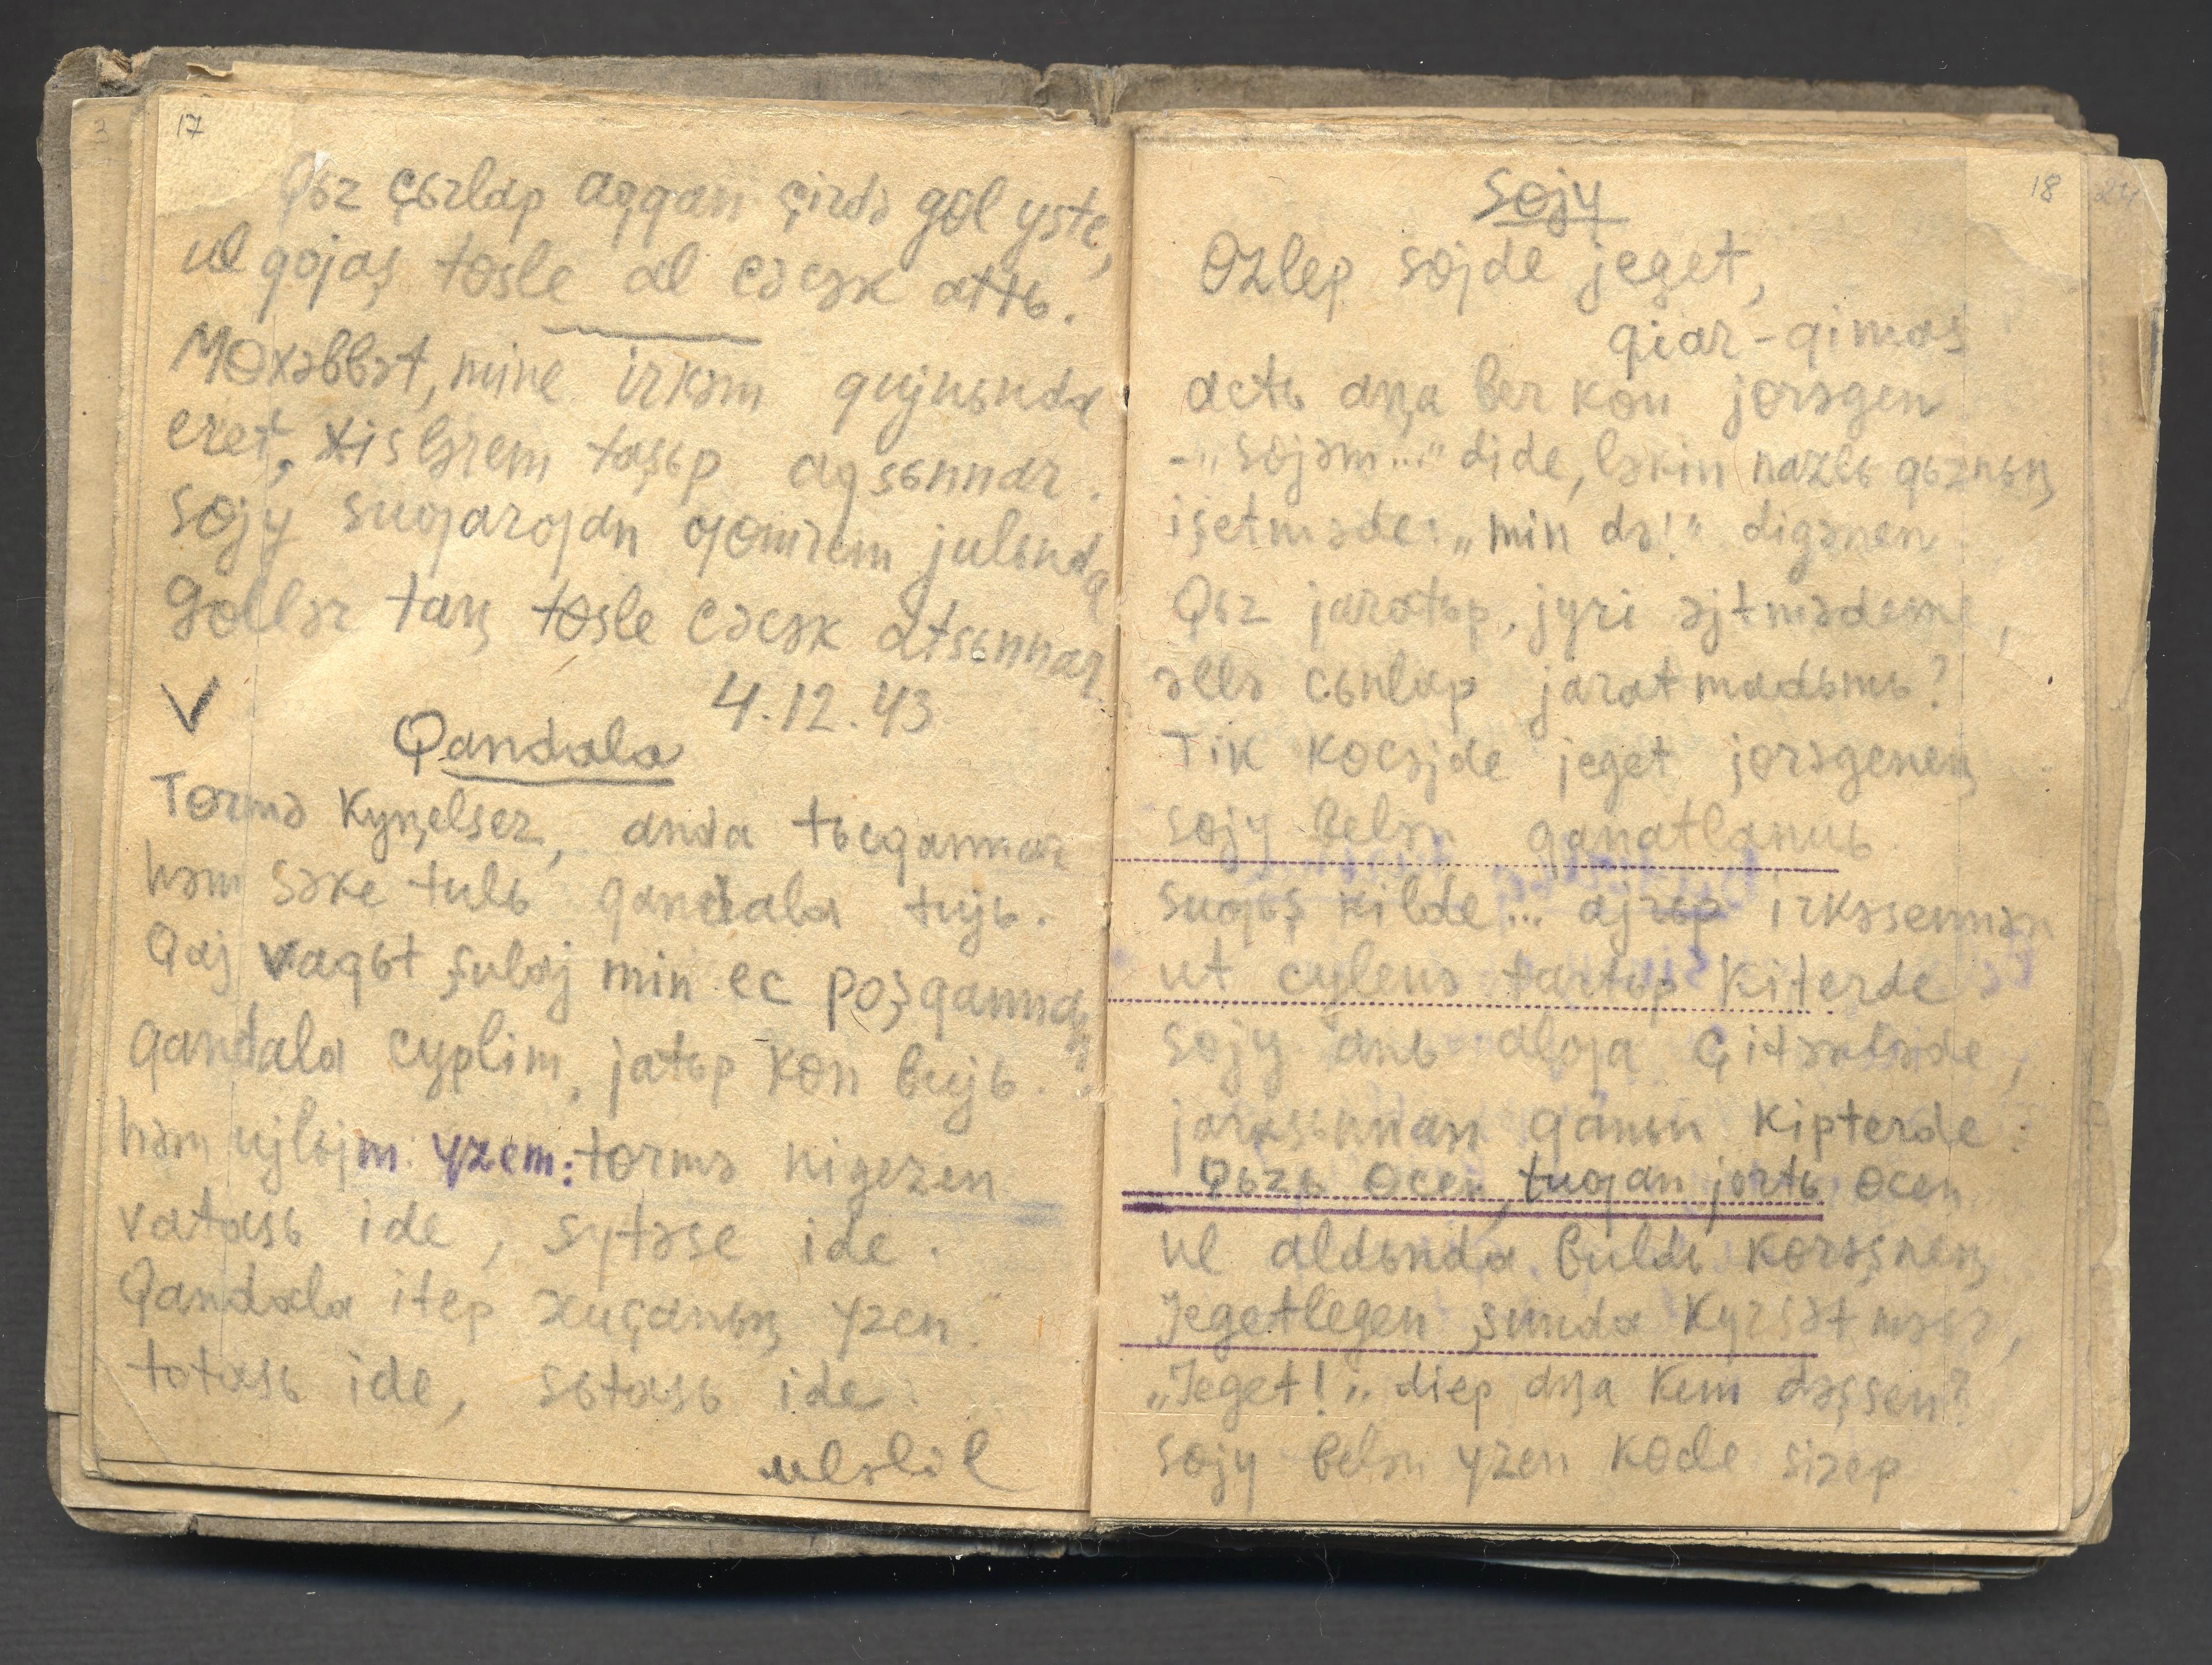 17
Qьz çьrlap açqan çirdə gɵl yste,
ul qojaş tɵsle al cəcək attь.
Mɵxəbbət, mine irkəm qujnьnda
eret, xislərem taşьp aqsьnnar.
Sɵjy suƣarƣan ƣɵmrem julьnda
Gɵllər taꞑ tɵsle cəcək atsьnnar.
4.12.43
V
Qandala
Tɵrmə kyꞑelsez, anda tьcqannar
həm səke tulь qandala tujь.
Qaj vaqьt şulaj min ec poşqannan
qandala cyplim, jatьp kɵn bujь.
həm ujlыjm yzem: tɵrmə nigezen
vatasь ide, sytəse ide.
Qandala itep xuçanьꞑ yzen
totasь ide, sьtasь ide.
18
Sɵjy
Ɵzlep sɵjde jeget,
qiar-qimas
actь aꞑa ber kɵn jɵrəgen
-„Sɵjəm..." dide, ləkin nazlь qьznьꞑ
işetməde: „min də!" digənen
Qьz jaratьp, jyri əjtmədeme,
əllə cьnlap jaratmadьmь?
Tik kɵcəjde jeget jɵrəgeneꞑ
sɵjy belən qanatlanuь.
Suƣьş kilde... ajrьp irkəsennən
ut cylenə tartьp kiterde
Sɵjy anь alƣa çitəkləde,
jarəsьnnan qanьn kipterde:
Qьzь ɵcen, tuƣan jortь ɵcen
ul aldьnda buldь kɵrəşneꞑ
Jegetlegen şunda kyrsətməsə,
„Jeget!" diep aꞑa kem dəşsen?
Sɵjy belən yzen kɵcle sizep